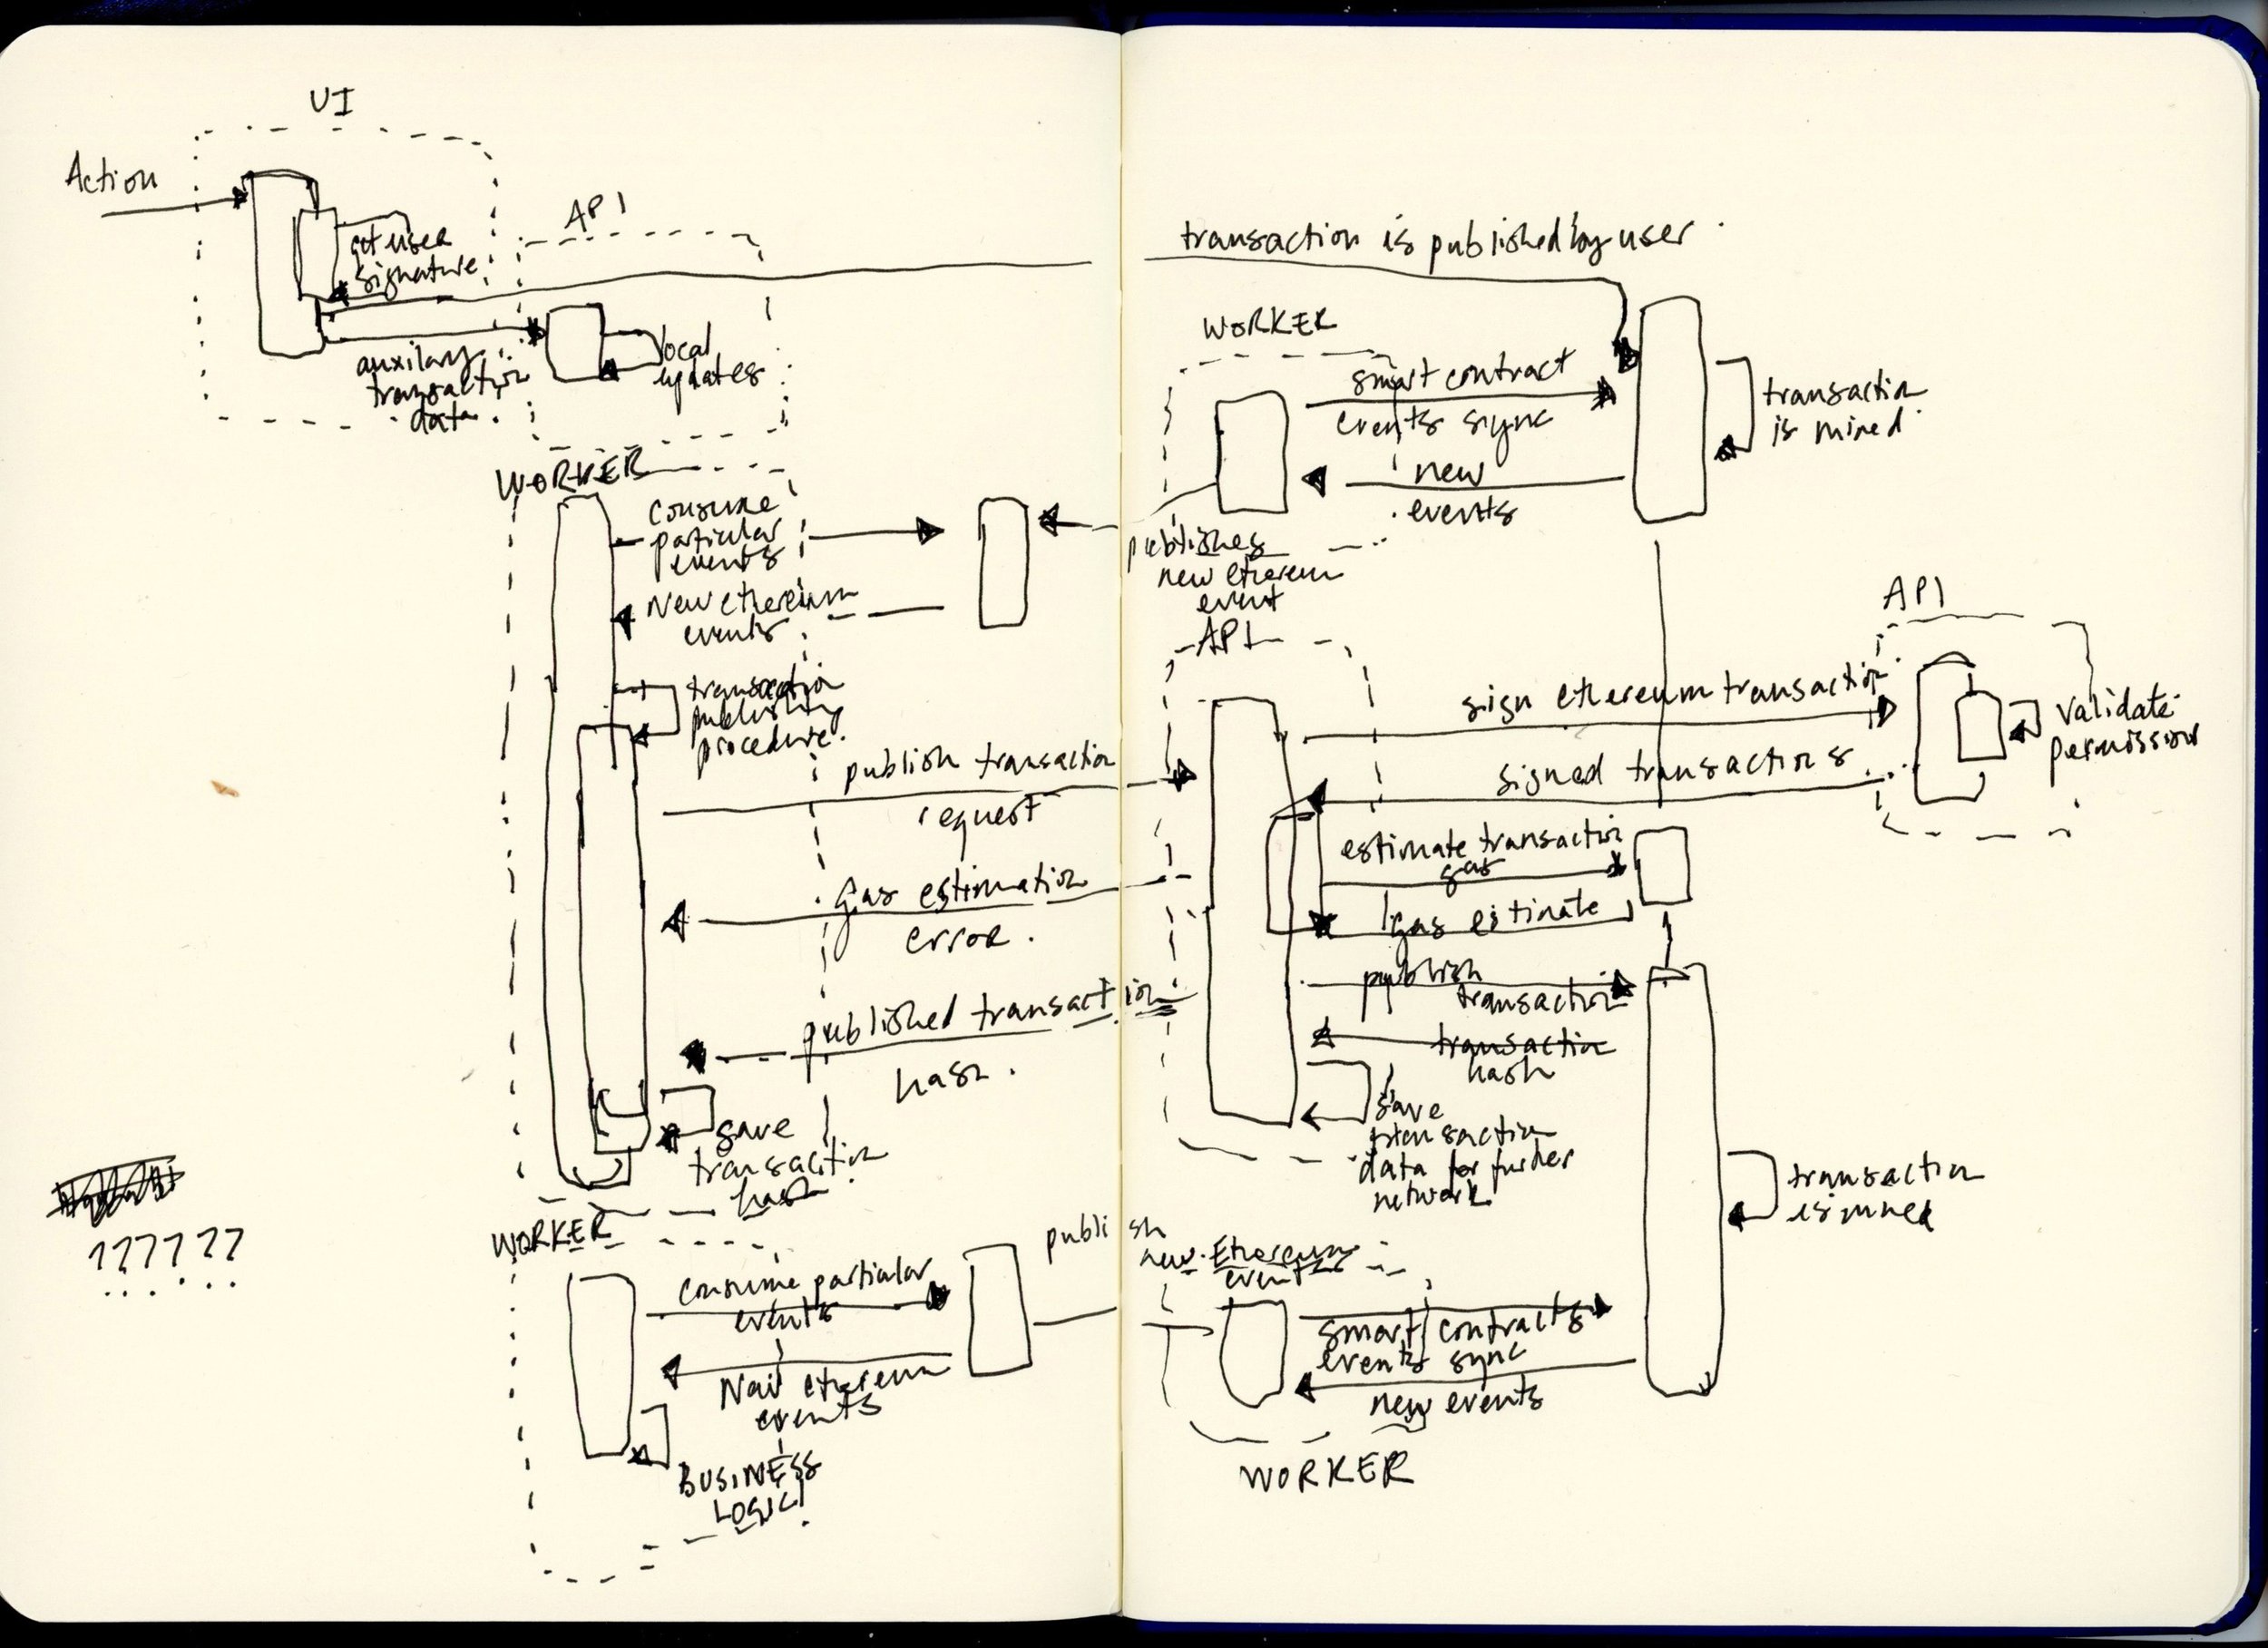 UI
Action
get user
signature
API
auxilary
transaction
data
local
updates
WORKER
consume
particular
events
New ethereum
events
transaction
publishing
procedure.
publish transaction
request
gas estimation
error.
published transaction
hash.
save
transaction
hash.
??????
WORKER
consume particular
events
New ethereum
events
BUSINESS
LOGIC
transaction is published by user.
WORKER
smart contract
events sync
new
events
transaction
is mined.
publishes
new ethereum
event
API
API
sign ethereum transaction
validate
permission
signed transactions.
estimate transaction
gas
gas estimate
publish
transaction
transaction
hash
save
transaction
data for further
network
transaction
is mined
publish
new Ethereum
event
smart contracts
events sync
new events
WORKER